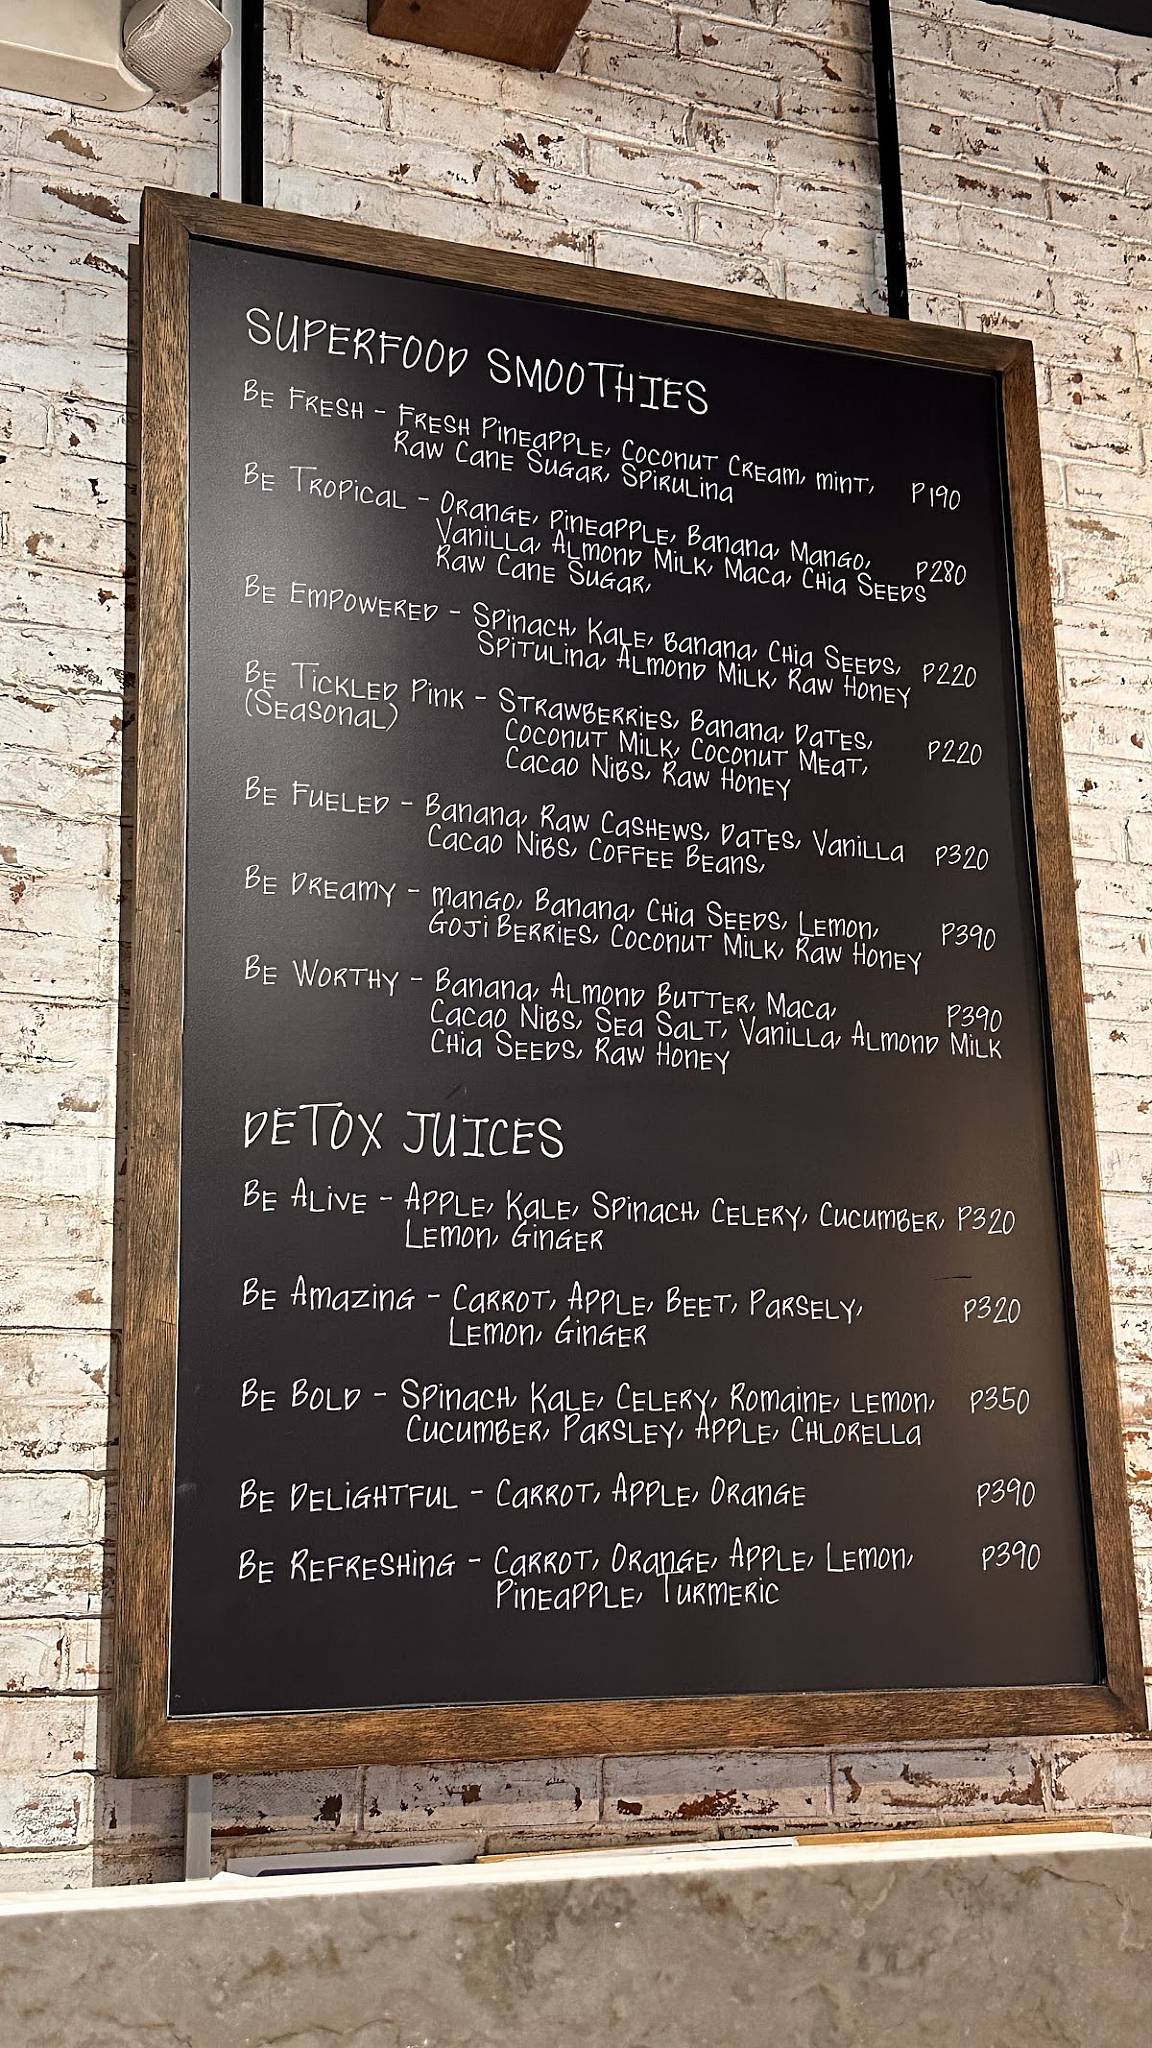 SUPERFOOD SMOOTHIES
BE FRESH - FRESH PINEAPPLE, COCONUT CREAM, MINT, P190
RAW CANE SUGAR, SPIRULINA
BE TROPICAL - ORANGE, PINEAPPLE, BANANA, MANGO, P280
VANILLA, ALMOND MILK, MACA, CHIA SEEDS
RAW CANE SUGAR,
BE EMPOWERED - SPINACH, KALE, BANANA, CHIA SEEDS, P220
SPITULINA, ALMOND MILK, RAW HONEY
BE TICKLED PINK - STRAWBERRIES, BANANA, DATES, P220
(SEASONAL) COCONUT MILK, COCONUT MEAT,
CACAO NIBS, RAW HONEY
BE FUELED - BANANA, RAW CASHEWS, DATES, VANILLA P320
CACAO NIBS, COFFEE BEANS,
BE DREAMY - MANGO, BANANA, CHIA SEEDS, LEMON, P390
GOJI BERRIES, COCONUT MILK, RAW HONEY
BE WORTHY - BANANA, ALMOND BUTTER, MACA, P390
CACAO NIBS, SEA SALT, VANILLA, ALMOND MILK
CHIA SEEDS, RAW HONEY
DETOX JUICES
BE ALIVE - APPLE, KALE, SPINACH, CELERY, CUCUMBER, P320
LEMON, GINGER
BE AMAZING - CARROT, APPLE, BEET, PARSELY, P320
LEMON, GINGER
BE BOLD - SPINACH, KALE, CELERY, ROMAINE, LEMON, P350
CUCUMBER, PARSLEY, APPLE, CHLORELLA
BE DELIGHTFUL - CARROT, APPLE, ORANGE P390
BE REFRESHING - CARROT, ORANGE, APPLE, LEMON, P390
PINEAPPLE, TURMERIC